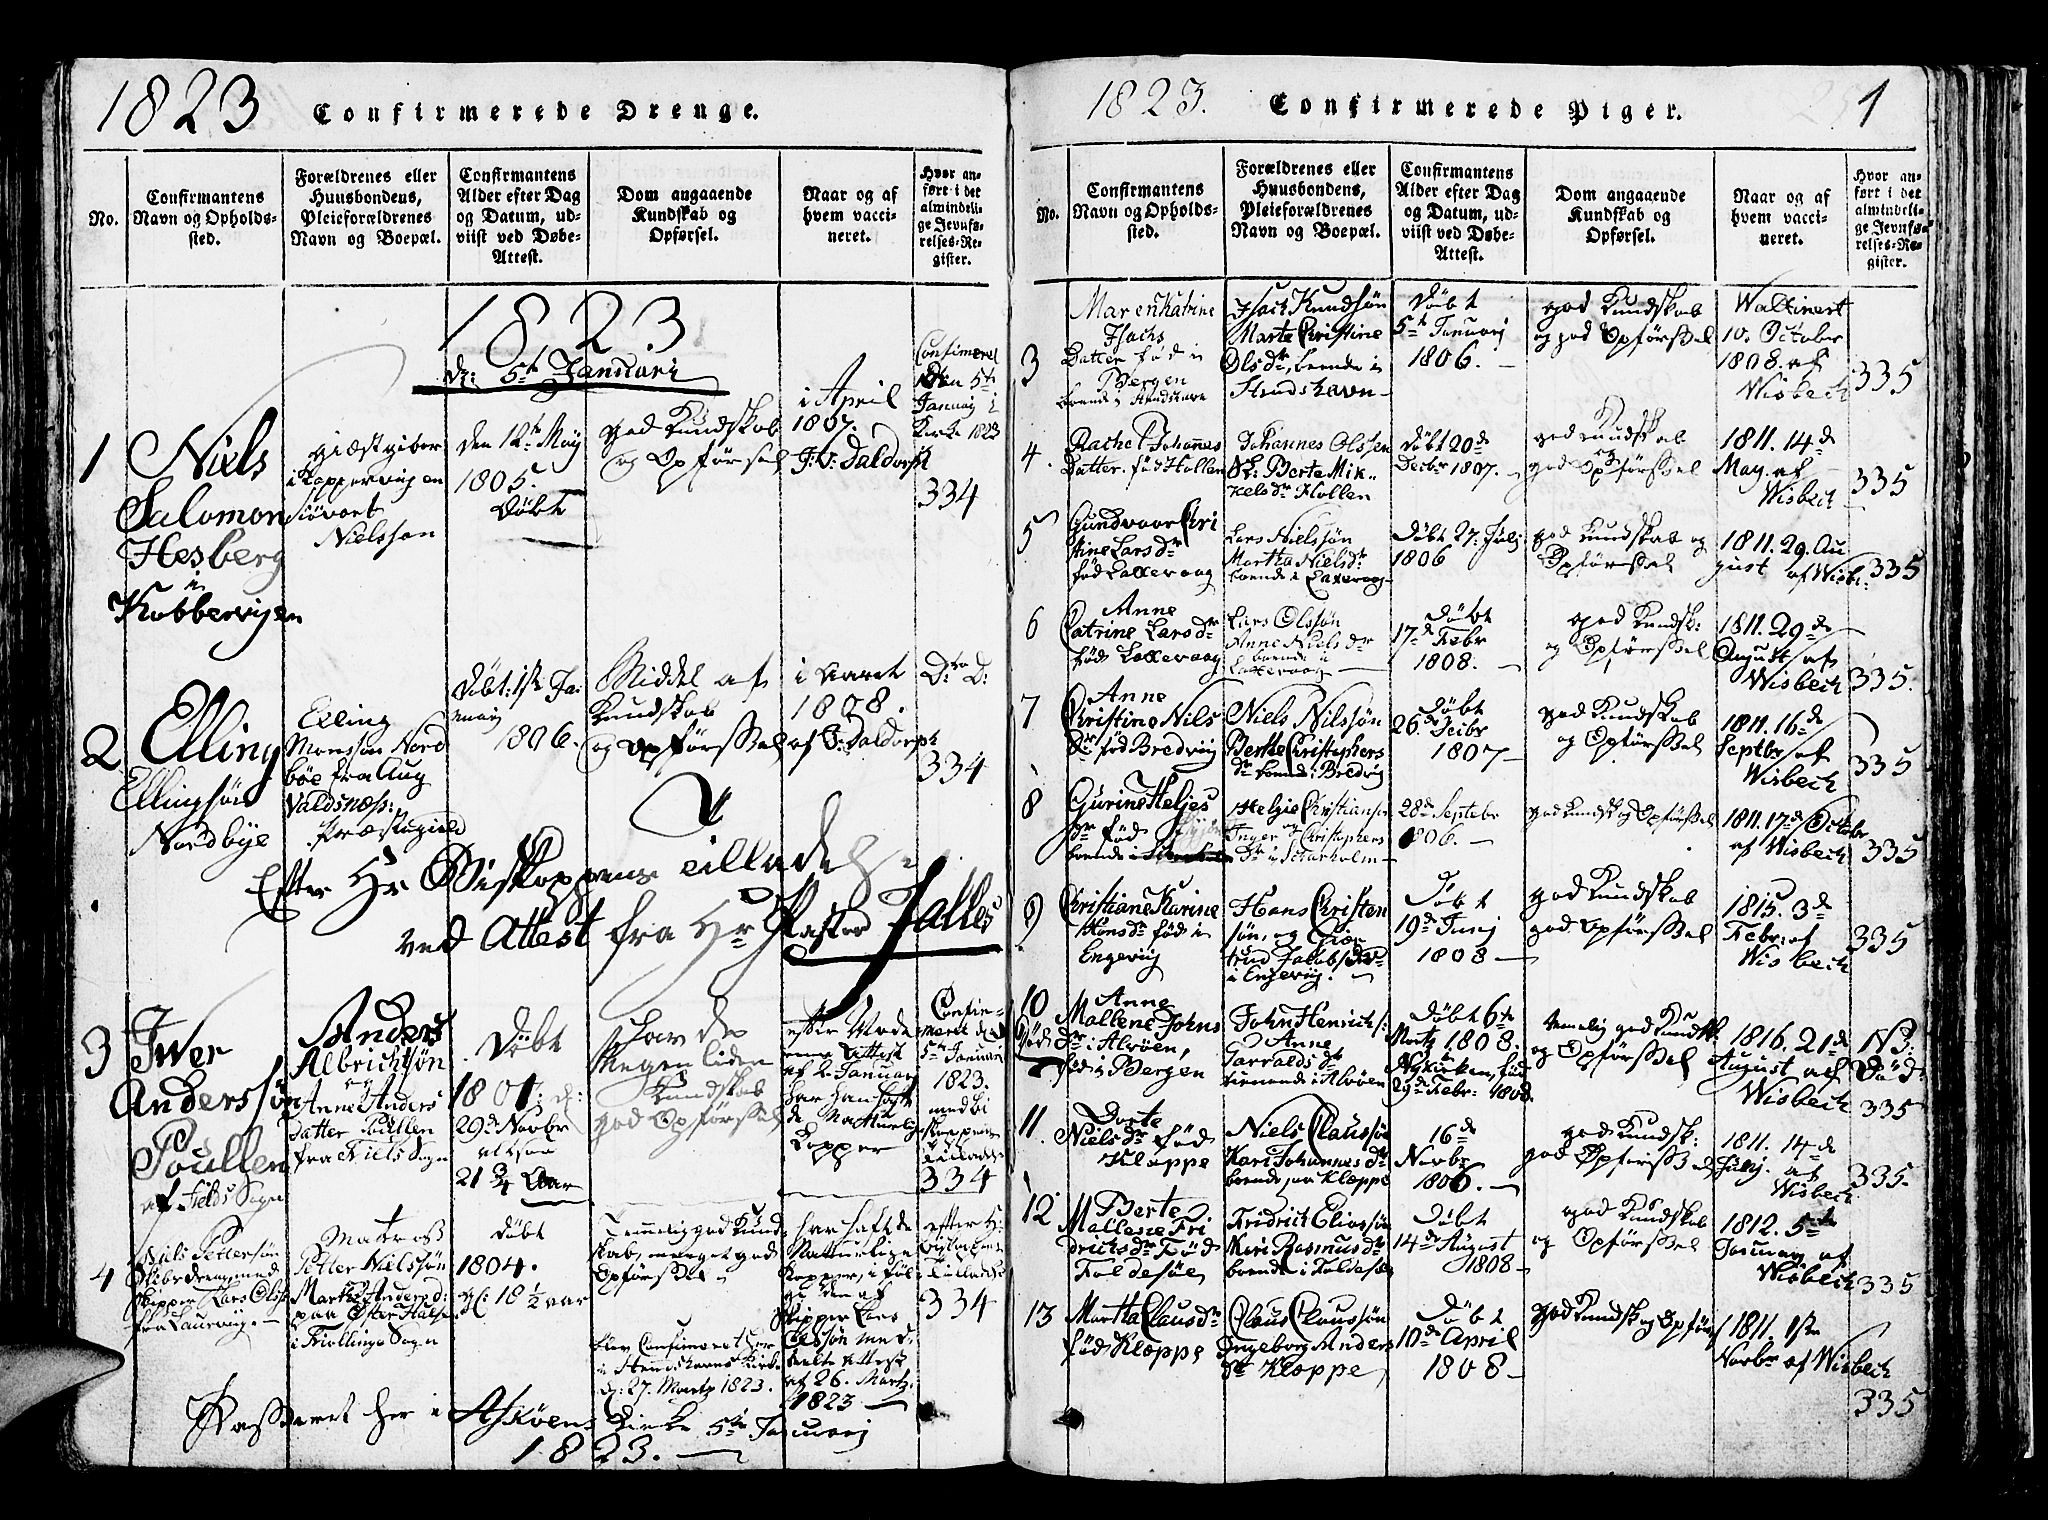 1823
Confirmerede Drenge.
No.
Confirmantens
Navn og Opholds-
sted.
Forældrenes eller
Huusbondens,
Pleieforældrenes
Navn og Boepæl.
Confirmantens
Alder efter Dag
og Datum, ud-
viist ved Døbe-
Attest.
Dom angaaende
Kundskab og
Opførsel.
Naar og af
hvem vacci-
neret.
Hvor an-
ført i det
almindeli-
ge Jevnfø-
relses-Re-
gister.
1823
d: 5te Januari
1
Niels
Salomon
Hesberg
i
Kobbervigen
giæstgiber
i Koppervigen
Siövert
Nielsson
den 12te May
1805.
Döbt
god Kundskab
og Opförsel
i April
1807.
J: v: Daldorph
Confirmeret
den 5te
Januarj i
Kirke 1823
334
2
Elling
Ellingsön
Nordbye
Elling
Monsson Nord
böe fra Aug
Valdsnæss:
Præstegield
Döbt: 1ste Ja:
nuarj
1806.
Middel af
Kundskab
og Opförssel
i Aaret
1808.
af J: Daldorph
Dto D:
334
Efter Hr Biskoppens Tilladelse
ved Attest fra Hr Pastor Jalles
3
Iwer
Anderssön
Poullen
af Fields Sogn
Anders
Albrichtsön
og
Anne Anders
datter Poullen
fra Fiels Sogn
Döbt
1801. d:
29de Novbr
altsaa
21 3/4 Aar
har en
Megen liden
Kundskab
god Opförssel
efter
Attest
af 2. Januarj
har han hafte
de Naturlig
Kopper
Confir-
meret den
5te Januarj
1823.
med Bi
skoppens
Tilladelse
334
4
Niels Pettersön
Skibsdreng med
Skipper Lars Olss:
fra Laurvig. —
Matros
Petter Nielssön
Marthe Andersd:
paa Öster Halsen
i Tiöllings Sogn
döbt
1804.
gl: 18 1/2 aar
Temmelig god Kund
skab, meget god
Opförssel
blev Confirmeret her
i Hennishavns Kirke
d: 27. Martz 1823.
har hafte de
Naturlige
Kopper, i föl
ge den af
Skipper Lars
Olssön med
deelte Attest
af 26. Martz.
1823 —
efter Hr
Biskoppens
Tilladelse
334
Passeret her i Asköens Kirke 5te Januarj
1823. —
1823.
Confirmerede Piger.
1
No.
Confirmantens
Navn og Opholds-
sted.
Forældrenes eller
Huusbondens,
Pleieforældrenes
Navn og Boepæl.
Confirmantens
Alder efter Dag
og Datum, ud-
viist ved Døbe-
Attest.
Dom angaaende
Kundskab og
Opførsel.
Naar og af
hvem vacci-
neret.
Hvor an-
ført i det
almindeli-
ge Jevnfø-
relses-Re-
gister.
3
Maren Katrine
Isachs
Datter föd i
Bergen
boende i
Isack Knudsön
Marte Christine
Olsdr, boende i
Strudshavn —
Döbt
5te Januarj
1806. —
god Kundskab
og god Opförssel
Waccinert
10. October
1808. af
Wisbech
335
4.
Rachel Johannes
Datter. föd Hollen
Johannes Olssen
og: Berte Mik..
kelsdr Hollen
Döbt 20de
Decbr 1807. —
god Kundskab
og
god Opförssel
1811. 14de
May. af
Wisbech
335
5
Gundvaar Chri
stine Larsdr
föd Laxevaag
Lars Nielssön
Martha Nielsdr
boende i Laxevaag
Döbt 27. Julj
1806
god Kundskab og
Opförssel
1811. 29. Au
gust af Wisb:
335
6
Anne
Catrine Larsdr
föd Laxevaag
Lars Olssön
Anne Nielsdr
boende i
Laxevaag
döbt
17de Febr
1808. —
god Kundsk:
og Opförssel
1811. 29de
August af
Wisbech
335.
7
Anne
Christine Nils
Dr föd Bredviig
Niels Nilssön
Berthe Christophers
dr boende i Bredvig
Döbt
26de Decbr
1807 —
god Kundskab
og Opförssel
1811. 16de
Septbr af
Wisbech
335
8
Gurine Heljes
dr föd
boende i
Helgie Christians:
og
Inger Christophers
Dr i Skarholm —
28de Septebr
1806. —
god Kundsk og Opförssel
1811. 17de October
af Wisbech
335
9
Christiane Karine
Hansdr föd i
Engeviig
Hans Christen
sön, og Giær
trud Jakobsdr
i Engeviig. —
Döbt
19de Junj
1808 —
god Kundskab
god Opförssel
1815. 3de
Febr: af
Wisbech
335
10
Anne
Mallene Johns
Dr i Alvöen,
föd i Bergen
John Henrichs:
Anne
Tarraldsdr
tienende i Alvöen
Döbt 6te
Martz 1808.
Nykirken, föd
29de Febr: 1808.
temelig god Kundsk:
og Opförssel
1816. 21de
August af
Wisbech
NB:
Död:
335
11.
Dorte
Nielsdr föd
Kleppe
Niels Claussön
Kari Johannesdr
boende paa Kleppe
16de
Novbr
1806. —
god Kundsk:
god Opförssel
1811. 14de
Julj. af
Wisbech
335.
12
Berte
Mallene Fri
drichsdr Föd
Foldesöe
Fridrich Eliassön
Kari Rasmusdr
boende i Foldesöe
Döbt
14de August
1808 —
god Kundskab
og Opförssel
1812. 5te
Januarj af
Wisbech
335
13
Martha Clausdr
föd Kleppe
Claus Claussön
Ingeborg Anders
dr Kleppe
Döbt
10de April
1808 —
god Kundsk og Opförs
1811. 1ste
Novbr af Wisbech
335